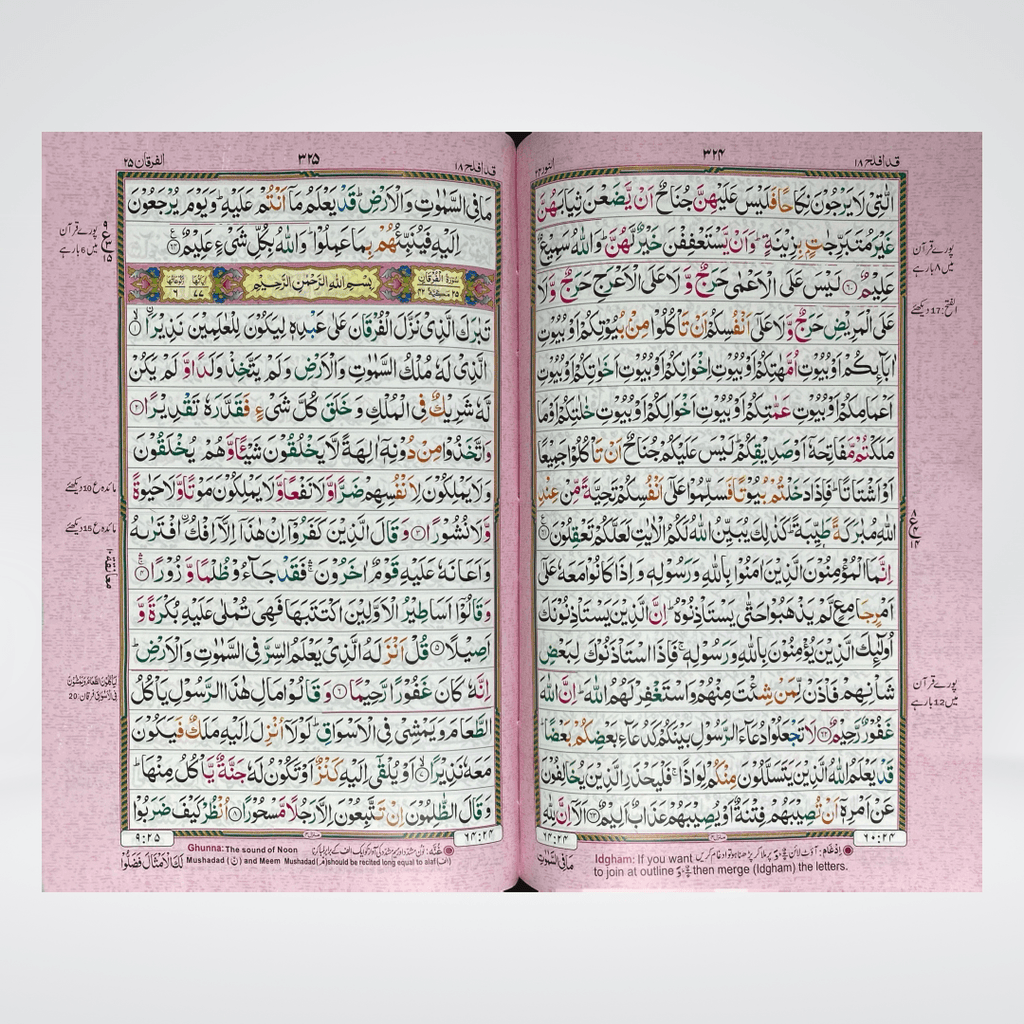 قد افلح ۱۸
۳۲۴
النور ۲۴
الّٰتِىْ لَا يَرْجُوْنَ نِكَاحًا فَلَيْسَ عَلَيْهِنَّ جُنَاحٌ اَنْ يَّضَعْنَ ثِيَابَهُنَّ
غَيْرَ مُتَبَرِّجٰتٍ بِزِيْنَةٍ ؕ وَاَنْ يَّسْتَعْفِفْنَ خَيْرٌ لَّهُنَّ ؕ وَاللّٰهُ سَمِيْعٌ
عَلِيْمٌ ﴿۶۰﴾ لَيْسَ عَلَى الْاَعْمٰى حَرَجٌ وَّلَا عَلَى الْاَعْرَجِ حَرَجٌ وَّلَا
عَلَى الْمَرِيْضِ حَرَجٌ وَّلَا عَلٰٓى اَنْفُسِكُمْ اَنْ تَاْكُلُوْا مِنْۢ بُيُوْتِكُمْ اَوْ بُيُوْتِ
اٰبَآئِكُمْ اَوْ بُيُوْتِ اُمَّهٰتِكُمْ اَوْ بُيُوْتِ اِخْوَانِكُمْ اَوْ بُيُوْتِ اَخَوٰتِكُمْ اَوْ بُيُوْتِ
اَعْمَامِكُمْ اَوْ بُيُوْتِ عَمّٰتِكُمْ اَوْ بُيُوْتِ اَخْوَالِكُمْ اَوْ بُيُوْتِ خٰلٰتِكُمْ اَوْ مَا
مَلَكْتُمْ مَّفَاتِحَهٗۤ اَوْ صَدِيْقِكُمْ ؕ لَيْسَ عَلَيْكُمْ جُنَاحٌ اَنْ تَاْكُلُوْا جَمِيْعًا
اَوْ اَشْتَاتًا ؕ فَاِذَا دَخَلْتُمْ بُيُوْتًا فَسَلِّمُوْا عَلٰٓى اَنْفُسِكُمْ تَحِيَّةً مِّنْ عِنْدِ
اللّٰهِ مُبٰرَكَةً طَيِّبَةً ؕ كَذٰلِكَ يُبَيِّنُ اللّٰهُ لَكُمُ الْاٰيٰتِ لَعَلَّكُمْ تَعْقِلُوْنَ ﴿۶۱﴾
اِنَّمَا الْمُؤْمِنُوْنَ الَّذِيْنَ اٰمَنُوْا بِاللّٰهِ وَرَسُوْلِهٖ وَاِذَا كَانُوْا مَعَهٗ عَلٰٓى
اَمْرٍ جَامِعٍ لَّمْ يَذْهَبُوْا حَتّٰى يَسْتَاْذِنُوْهُ ؕ اِنَّ الَّذِيْنَ يَسْتَاْذِنُوْنَكَ
اُولٰٓئِكَ الَّذِيْنَ يُؤْمِنُوْنَ بِاللّٰهِ وَرَسُوْلِهٖ ۚ فَاِذَا اسْتَاْذَنُوْكَ لِبَعْضِ
شَاْنِهِمْ فَاْذَنْ لِّمَنْ شِئْتَ مِنْهُمْ وَاسْتَغْفِرْ لَهُمُ اللّٰهَ ؕ اِنَّ اللّٰهَ
غَفُوْرٌ رَّحِيْمٌ ﴿۶۲﴾ لَا تَجْعَلُوْا دُعَآءَ الرَّسُوْلِ بَيْنَكُمْ كَدُعَآءِ بَعْضِكُمْ بَعْضًا ؕ
قَدْ يَعْلَمُ اللّٰهُ الَّذِيْنَ يَتَسَلَّلُوْنَ مِنْكُمْ لِوَاذًا ۚ فَلْيَحْذَرِ الَّذِيْنَ يُخَالِفُوْنَ
عَنْ اَمْرِهٖۤ اَنْ تُصِيْبَهُمْ فِتْنَةٌ اَوْ يُصِيْبَهُمْ عَذَابٌ اَلِيْمٌ ﴿۶۳﴾ اَلَاۤ اِنَّ لِلّٰهِ
پورے قرآن
میں ۸ بار ہے
الفتح:17 دیکھئے
پورے قرآن
میں 12 بار ہے
۶۰:۲۴
۶۳:۲۴
Idgham: If you want
to join at outline then merge (Idgham) the letters.
مَا فِى السَّمٰوٰتِ
قد افلح ۱۸
۳۲۵
الفرقان ۲۵
مَا فِى السَّمٰوٰتِ وَالْاَرْضِ ؕ قَدْ يَعْلَمُ مَاۤ اَنْتُمْ عَلَيْهِ ؕ وَيَوْمَ يُرْجَعُوْنَ
اِلَيْهِ فَيُنَبِّئُهُمْ بِمَا عَمِلُوْا ؕ وَاللّٰهُ بِكُلِّ شَىْءٍ عَلِيْمٌ ﴿۶۴﴾
سُوْرَةُ الْفُرْقَانِ ۲۵ مَكِّيَّةٌ ۴۲
بِسْمِ اللّٰهِ الرَّحْمٰنِ الرَّحِيْمِ
اٰيَاتُهَا ۷۷ رُكُوْعَاتُهَا ۶
تَبٰرَكَ الَّذِىْ نَزَّلَ الْفُرْقَانَ عَلٰى عَبْدِهٖ لِيَكُوْنَ لِلْعٰلَمِيْنَ نَذِيْرًا ﴿۱﴾
الَّذِىْ لَهٗ مُلْكُ السَّمٰوٰتِ وَالْاَرْضِ وَلَمْ يَتَّخِذْ وَلَدًا وَّلَمْ يَكُنْ
لَّهٗ شَرِيْكٌ فِى الْمُلْكِ وَخَلَقَ كُلَّ شَىْءٍ فَقَدَّرَهٗ تَقْدِيْرًا ﴿۲﴾
وَاتَّخَذُوْا مِنْ دُوْنِهٖۤ اٰلِهَةً لَّا يَخْلُقُوْنَ شَيْئًا وَّهُمْ يُخْلَقُوْنَ
وَلَا يَمْلِكُوْنَ لِاَنْفُسِهِمْ ضَرًّا وَّلَا نَفْعًا وَّلَا يَمْلِكُوْنَ مَوْتًا وَّلَا حَيٰوةً
وَّلَا نُشُوْرًا ﴿۳﴾ وَقَالَ الَّذِيْنَ كَفَرُوْۤا اِنْ هٰذَاۤ اِلَّاۤ اِفْكُ اۨفْتَرٰٮهُ
وَاَعَانَهٗ عَلَيْهِ قَوْمٌ اٰخَرُوْنَ ۛۚ فَقَدْ جَآءُوْ ظُلْمًا وَّزُوْرًا ﴿۴﴾
وَقَالُوْۤا اَسَاطِيْرُ الْاَوَّلِيْنَ اكْتَتَبَهَا فَهِىَ تُمْلٰى عَلَيْهِ بُكْرَةً وَّ
اَصِيْلًا ﴿۵﴾ قُلْ اَنْزَلَهُ الَّذِىْ يَعْلَمُ السِّرَّ فِى السَّمٰوٰتِ وَالْاَرْضِ ؕ
اِنَّهٗ كَانَ غَفُوْرًا رَّحِيْمًا ﴿۶﴾ وَقَالُوْا مَالِ هٰذَا الرَّسُوْلِ يَاْكُلُ
الطَّعَامَ وَيَمْشِىْ فِى الْاَسْوَاقِ ؕ لَوْلَاۤ اُنْزِلَ اِلَيْهِ مَلَكٌ فَيَكُوْنَ
مَعَهٗ نَذِيْرًا ﴿۷﴾ اَوْ يُلْقٰٓى اِلَيْهِ كَنْزٌ اَوْ تَكُوْنُ لَهٗ جَنَّةٌ يَّاْكُلُ مِنْهَا ؕ
وَقَالَ الظّٰلِمُوْنَ اِنْ تَتَّبِعُوْنَ اِلَّا رَجُلًا مَّسْحُوْرًا ﴿۸﴾ اُنْظُرْ كَيْفَ ضَرَبُوْا
پورے قرآن
میں 6 بار ہے
مائدہ ع 10 دیکھئے
مائدہ ع 15 دیکھئے
معانقة
۶۴:۲۴
۹:۲۵
Ghunna: The sound of Noon
Mushadad (نّ) and Meem Mushadad (مّ) should be recited long equal to alaf (الف)
لَكَ الْاَمْثَالَ فَضَلُّوْا